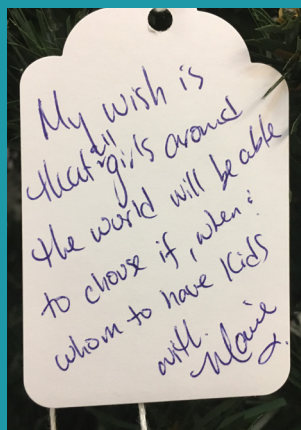 My wish is
that all girls around
the world will be able
to choose if, when &
whom to have kids
with.